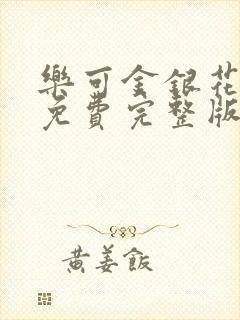 樂可金銀花
免費完整版
黃姜飯